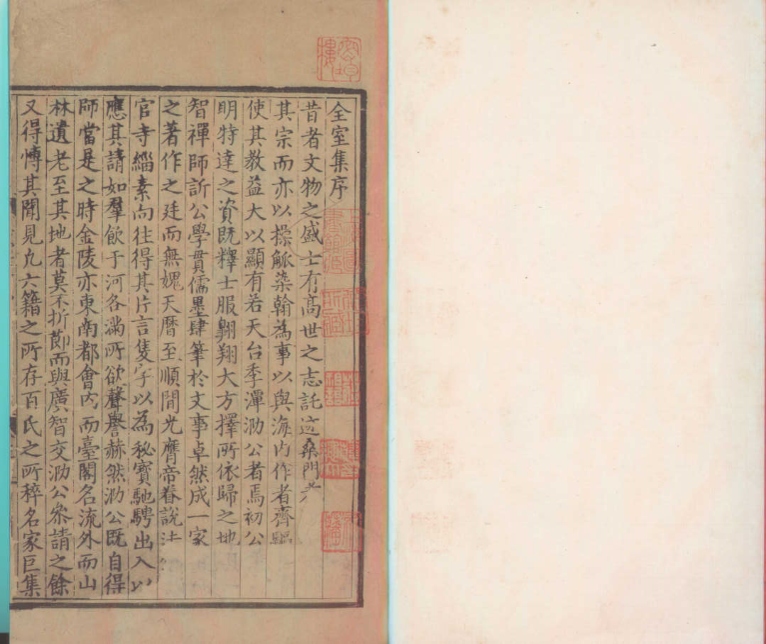 全室集序
昔者文物之盛士有高世之志託迹桑門
其宗而亦以操觚染翰為事以與海內作者齊
使其教益大以顯有若天台季潭泐公者焉初公
明特達之資既釋士服翺翔大方擇所依歸之地
智禪師訢公學貫儒墨肆筆於文事卓然成一家
之著作之廷而無媿天曆至順間光膺帝眷說法
官寺緇素向往得其片言隻字以為秘寶馳騁出入以
應其請如羣飲于河各滿所欲聲譽赫然泐公既自得
師當是之時金陵亦東南都會內而臺閣名流外而山
林遺老至其地者莫不折節而與廣智交泐公叅請之餘
又得愽其聞見九六籍之所存百氏之所稡名家巨集